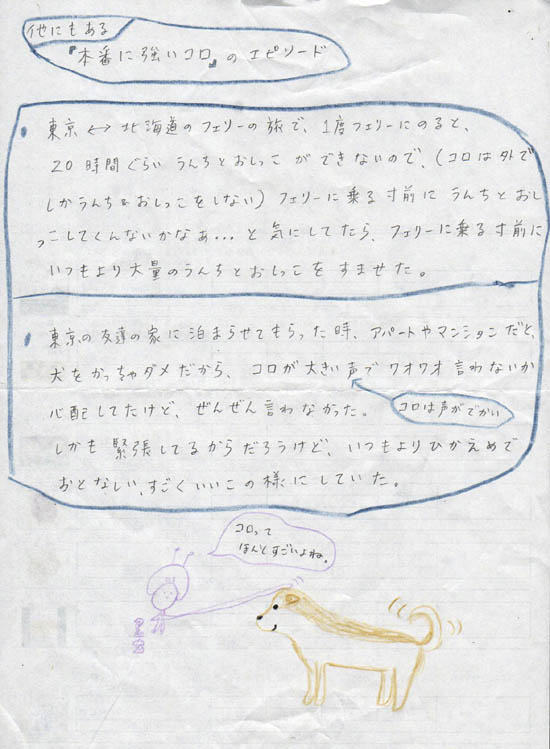 他にもある
『本番に強いコロ』のエピソード
• 東京 ↔ 北海道のフェリーの旅で、1度フェリーにのると、
20時間ぐらいうんちとおしっこができないので、(コロは外で
しかうんち&おしっこをしない)フェリーに乗る寸前にうんちとおし
っこしてくんないかなぁ…と気にしてたら、フェリーに乗る寸前に
いつもより大量のうんちとおしっこをすませた。
• 東京の友達の家に泊まらせてもらった時、アパートやマンションだと、
犬をかっちゃダメだから、コロが大きい声でワオワオ言わないか
心配してたけど、ぜんぜん言わなかった。
コロは声がでかい
しかも緊張してるからだろうけど、いつもよりひかえめで
おとなしい、すごくいいこの様にしていた。
コロって
ほんとすごいよね。